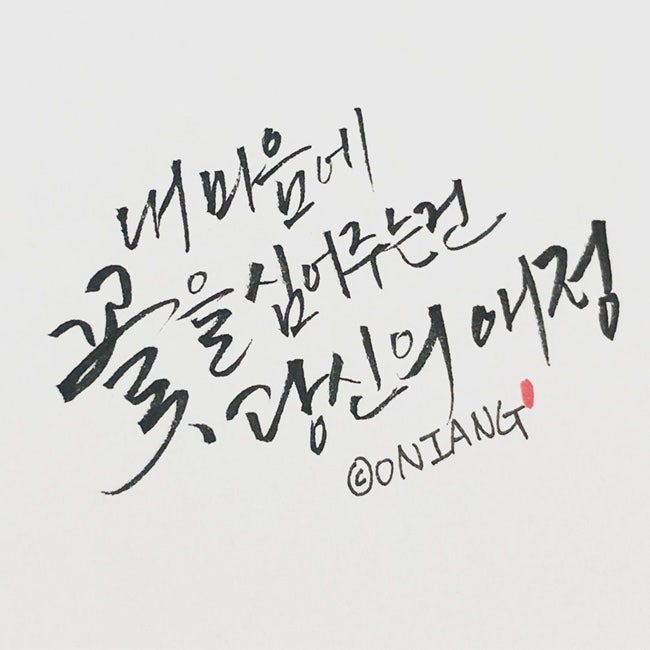 내 마음에
꽃을 심어주는건
당신의 애정
©ONIANG